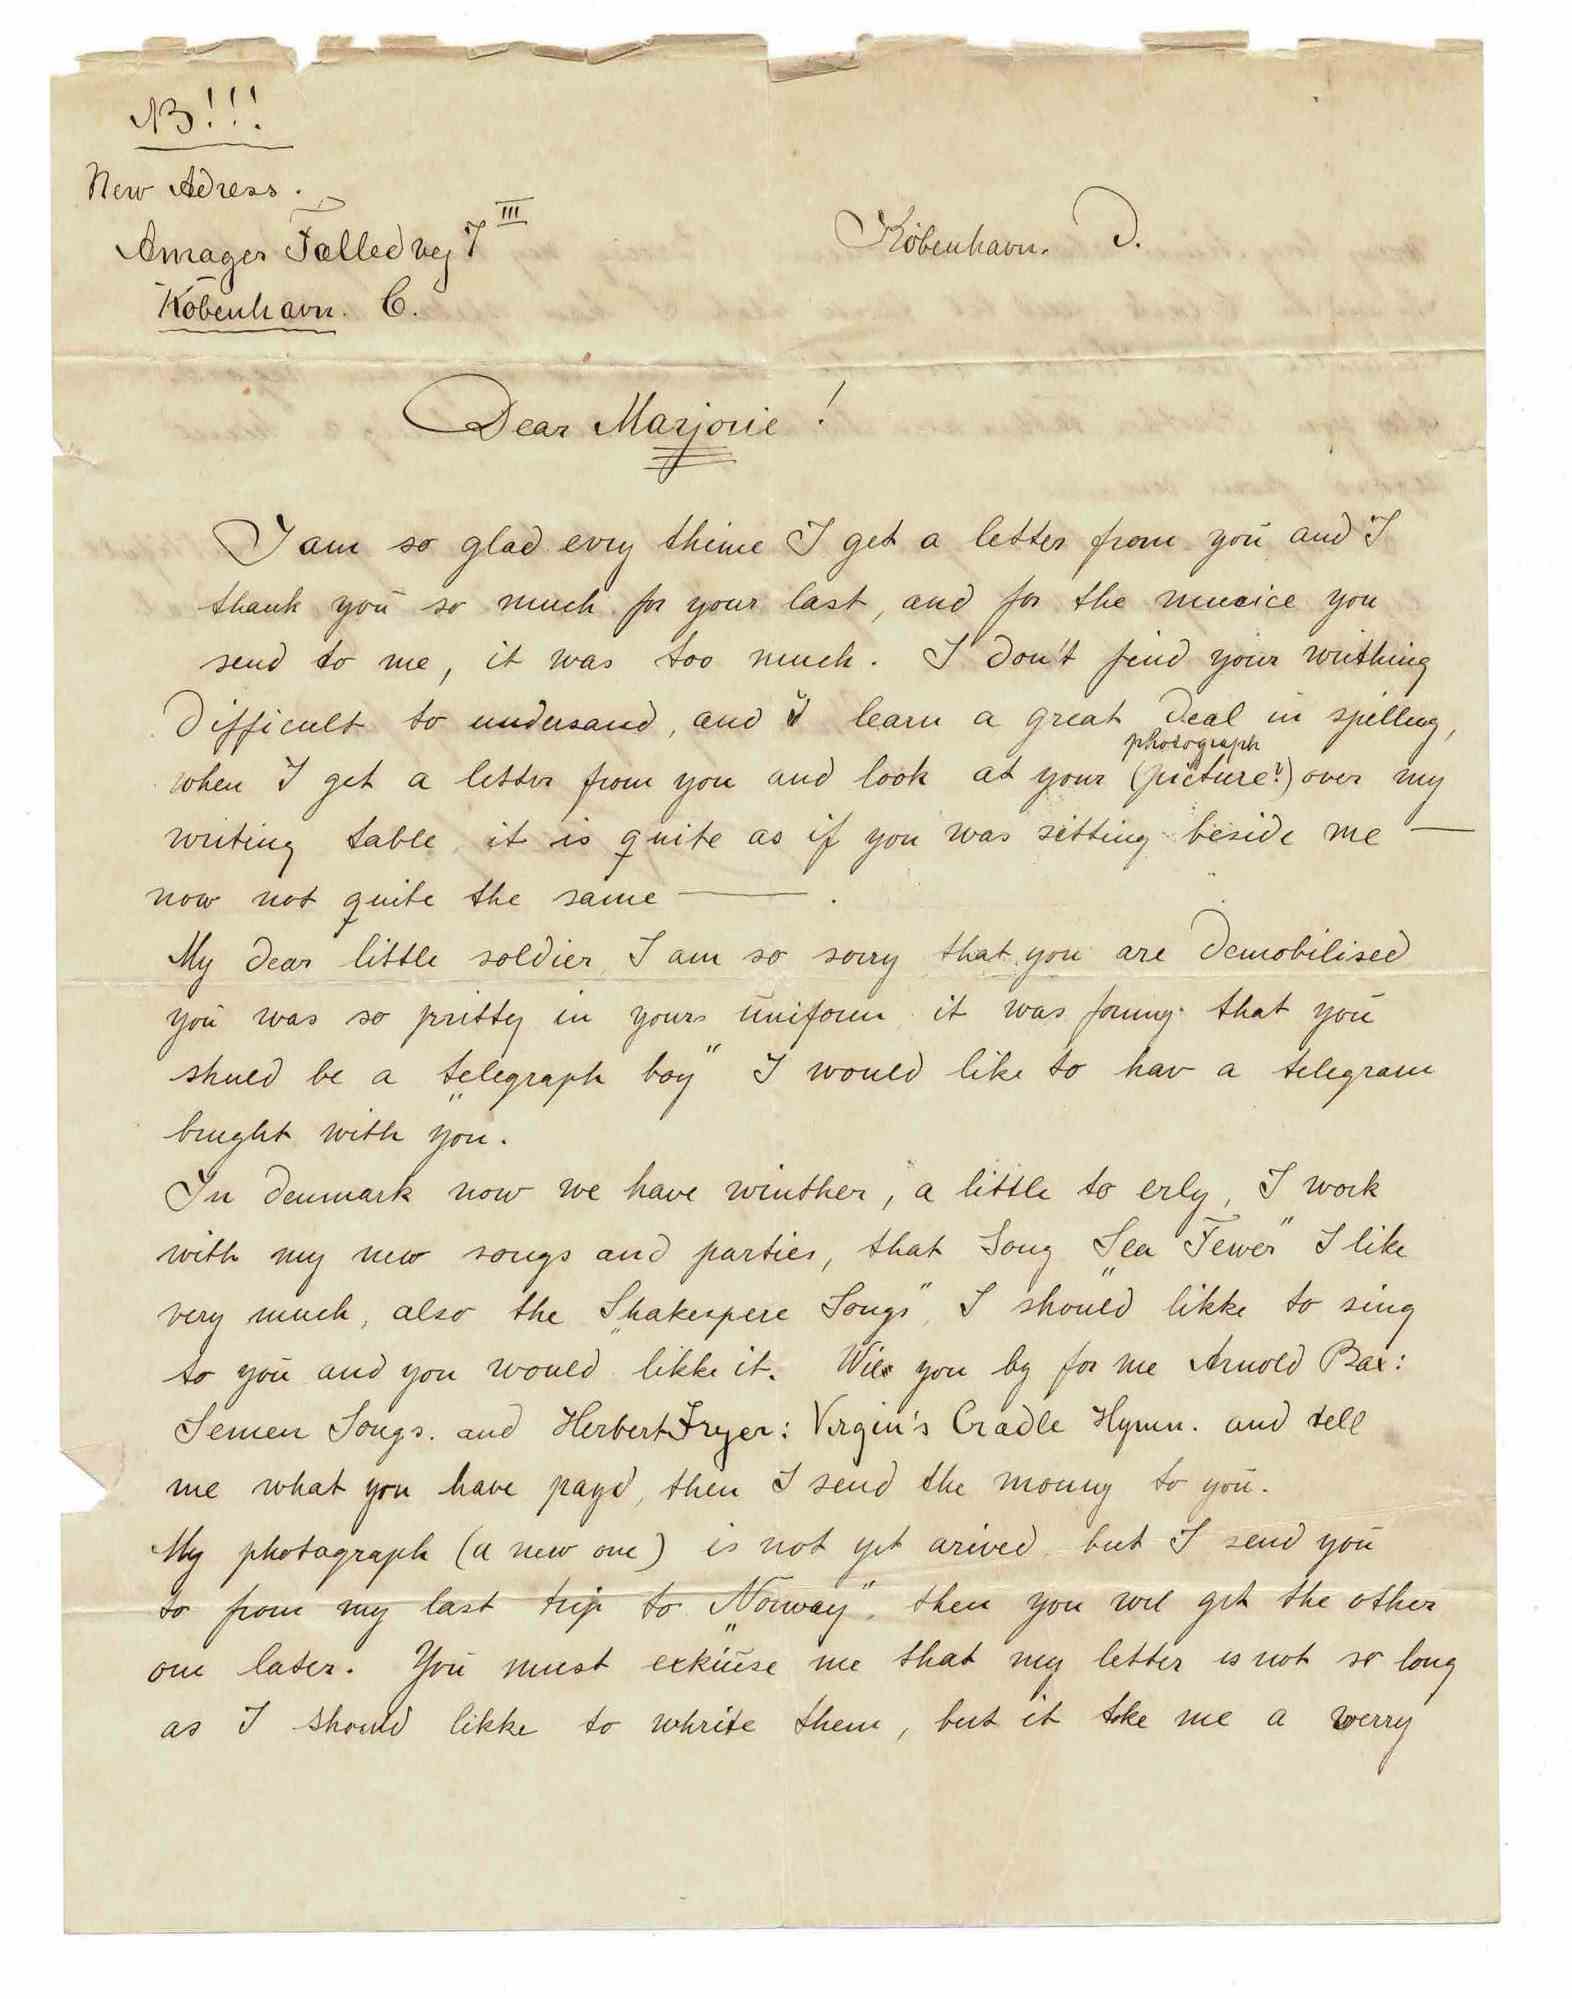 NB!!!
New Adress.
Amager Fælledvej 7 III
København. C.
København. D.
Dear Marjorie!
I am so glad evry thime I get a letter from you and I
thank you so much for your last, and for the musice you
send to me, it was too much. I don't find your writhing
difficult to undersand, and I learn a great deal in spelling,
photograph
when I get a letter from you and look at your (picture?) over my
writing table it is quite as if you was sitting beside me —
now not quite the same — .
My dear little soldier, I am so sorry that you are demobilised
you was so pritty in yours uniform it was fonny that you
shued be a „telegraph boy" I would like to hav a telegram
bught with you.
In denmark now we have winther, a little to erly, I work
with my new songs and parties, that Song „Sea Fewer" I like
very much, also the „Shakespere Songs", I should likke to sing
to you and you would likke it. Will you by for me Arnold Bax:
Semen Songs. and Herbert Fryer: Virgin's Cradle Hymn. and tell
me what you have payd, then I send the monny to you.
My photograph (a new one) is not yet arived but I send you
to from my last trip to „Norway", then you wil get the other
one later. You must exkuse me that my letter is not so long
as I should likke to whrite them, but it take me a werry